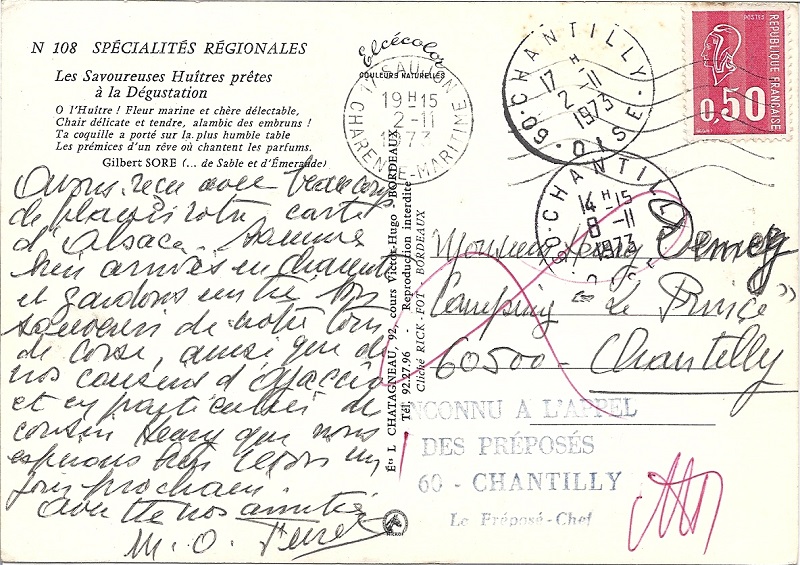 N 108 SPÉCIALITÉS RÉGIONALES
Les Savoureuses Huîtres prêtes
à la Dégustation
O l'Huître ! Fleur marine et chère délectable,
Chair délicate et tendre, alambic des embruns !
Ta coquille a porté sur la plus humble table
Les prémices d'un rêve où chantent les parfums.
Gilbert SORE (... de Sable et d'Émeraude)
Avons reçu avec beaucoup
de plaisir votre carte
d'Alsace. Sommes
bien arrivés en
et gardons un très bon
souvenir de notre
de Corse, ainsi que de
nos cousins d'Ajaccio
et en particulier de
cousin que nous
espérons bien un
jour prochain.
avec nos amitiés
M. O.
Elcécolor
COULEURS NATURELLES
17
19 H 15
2 - 11
1973
CHARENTE-MARITIME
Éon L CHATAGNEAU, 92, cours Victor-Hugo - BORDEAUX
Tél 92.27.96 - Reproduction interdite
Cliché RICK-FOT BORDEAUX
60 · CHANTILLY · OISE
17 H
2 - 11
1973
60 · CHANTILLY
14 H 15
8 - 11
1973
OISE
POSTES
REPUBLIQUE FRANÇAISE
0,50
Monsieur
Camping "Le Prince"
60500 - Chantilly
INCONNU A L'APPEL
DES PRÉPOSÉS
60 - CHANTILLY
Le Préposé-Chef